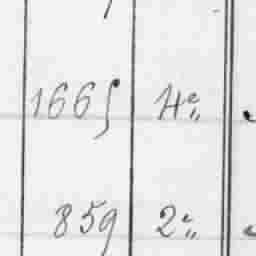 1665 4e„
859 2e„